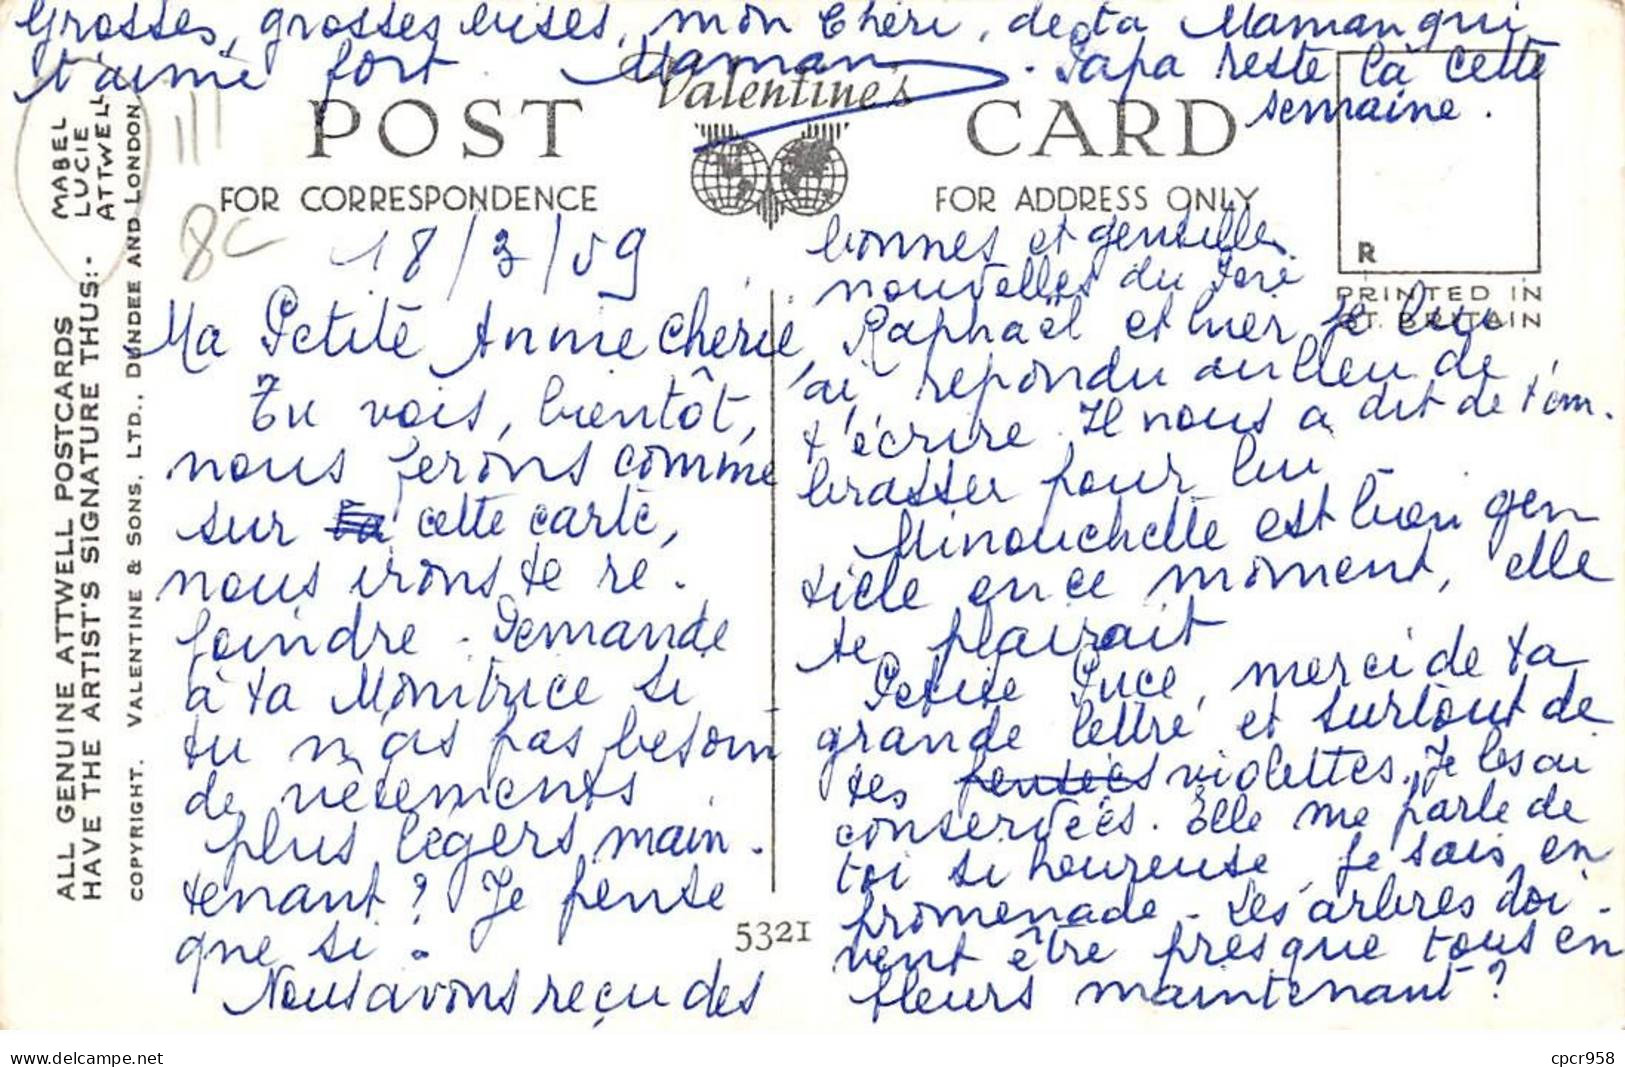 Grosses, grosses bises, mon Chéri, de ta Maman qui
t'aime fort Maman. Papa reste là cette
semaine.
Valentine's
POST CARD
FOR CORRESPONDENCE
FOR ADDRESS ONLY
R
PRINTED IN
GT. BRITAIN
MABEL
LUCIE
ATTWELL
ALL GENUINE ATTWELL POSTCARDS
HAVE THE ARTIST'S SIGNATURE THUS:-
COPYRIGHT. VALENTINE & SONS, LTD., DUNDEE AND LONDON
8C
18/3/59
Ma Petite Annie cherie,
Tu vois, bientôt,
nous ferons comme
sur cette carte,
nous irons te re-
joindre. Demande
à ta Monitrice si
tu n'as pas besoin
de vêtements
plus légers main-
tenant? Je pense
que si.
Nous avons reçu des
bonnes et gentilles
nouvelles du Père
Raphaël et hier je
ai repondu au lieu de
t'écrire. Il nous a dit de t'em-
brasser pour lui
Minouchette est bien gen
tille en ce moment, elle
te plairait
Petite Puce, merci de ta
grande lettre et surtout de
tes pensées violettes. Je les ai
conservées. Elle me parle de
toi si heureuse, je sais, en
promenade - Les arbres doi-
vent être presque tous en
fleurs maintenant?
5321
cpcr958